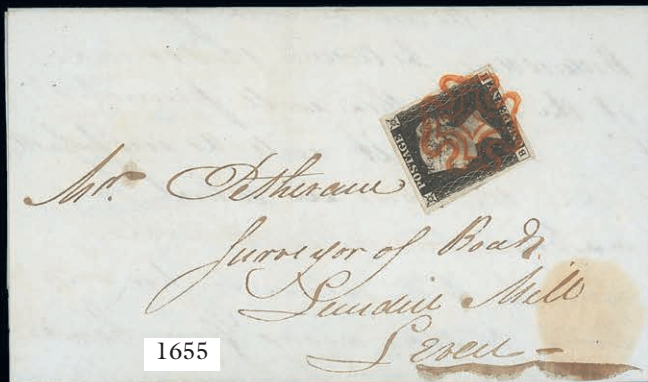 POSTAGE
Mr. Petherane
Surveyor of Roads
Lundin Mill
Leven
1655